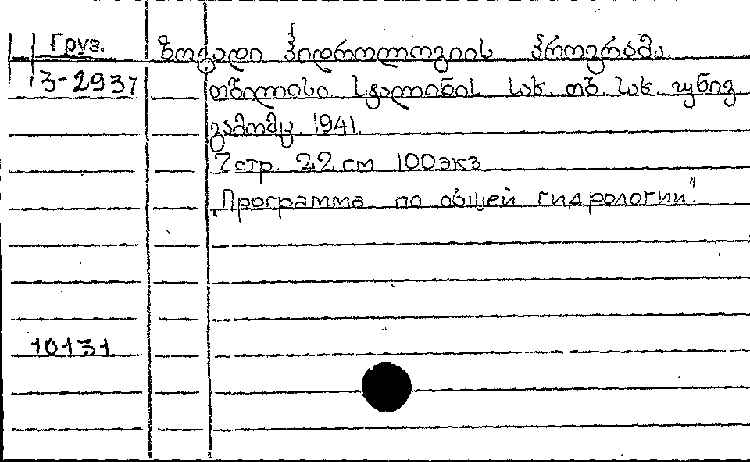 Груз. ზოგადი ჰიდროლოგიის პროგრამა.
3-2937 თბილისი. სტალინის სახ. თბ. სახ. უნივ.
გამომც. 1941.
7 стр. 22 см 100 экз
„Программа по общей гидрологии"
10131